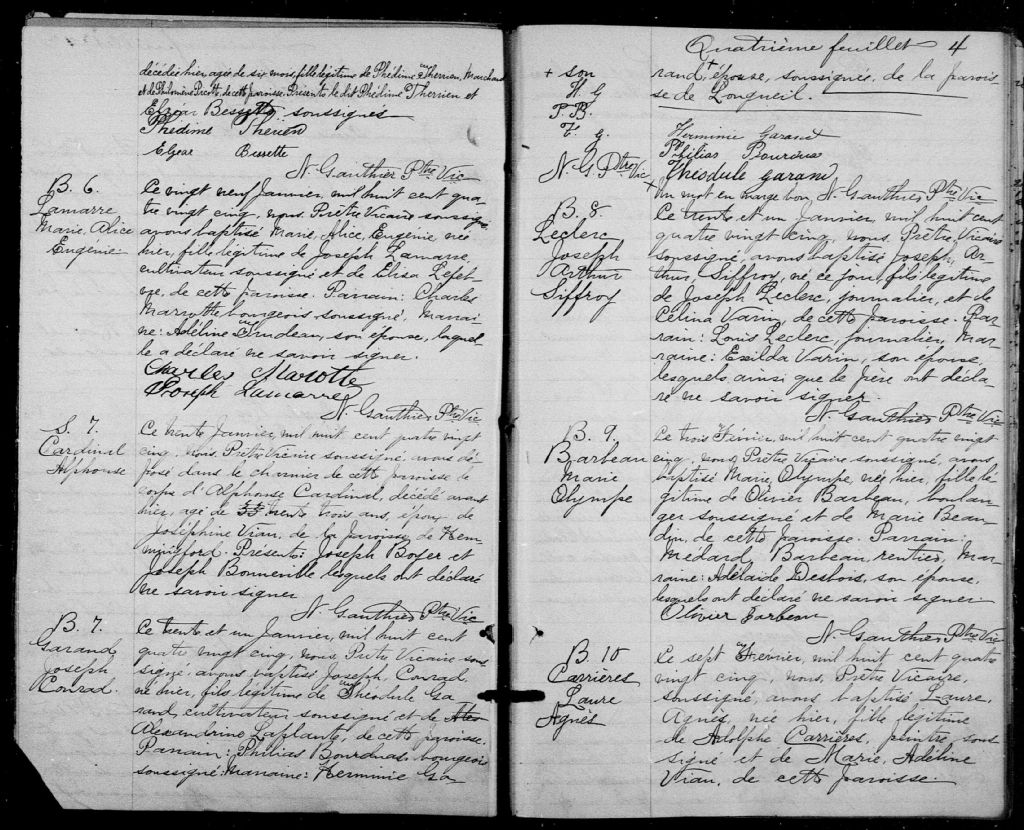 décédée hier, agée de six mois, fille légitime de Phédime Therrien, Marchand
et de Philomène Picotte, de cette paroisse. Présents le dit Phédime Therrien et
Elzéar Bessette soussignés
Phédime Therien
Elzear Bissette
N. Gauthier Ptre Vic
B. 6.
Lamarre
Marie, Alice
Eugénie
Le vingt neuf Janvier, mil huit cent qua-
tre vingt cinq, nous, Prêtre Vicaire soussigné,
avons baptisé Marie, Alice, Eugénie née
hier, fille légitime de Joseph Lamarre,
cultivateur soussigné et de Elisa Lefeb-
vre, de cette paroisse. Parrain: Charles
Marotte bourgeois soussigné, marrai-
ne: Adéline Trudeau, son épouse, laquel-
le a déclaré ne savoir signer.
Charles Marotte
Joseph Lamarre
N. Gauthier Ptre Vic
S. 7.
Cardinal
Alphonse
Le trente Janvier, mil huit cent quatre vingt
cinq, nous, Prêtre Vicaire soussigné, avons dé-
posé dans le charnier de cette paroisse le
corps d'Alphonse Cardinal, décédé avant
hier, agé de trente trois ans, époux de
Joséphine Vian, de la paroisse de Hem-
mingford. Présents: Joseph Boyer et
Joseph Bonneville lesquels ont déclaré
ne savoir signer
N. Gauthier Ptre Vic
B. 7.
Garand
Joseph
Conrad.
Le trente et un Janvier, mil huit cent
quatre vingt cinq, nous Prêtre Vicaire sous-
signé, avons baptisé Joseph, Conrad,
né hier, fils légitime de Théodule Ga-
rand, cultivateur soussigné et de
Alexandrine Laplante, de cette paroisse.
Parrain: Philias Bourdeau, bourgeois
soussigné: marraine: Herminie Ga
Quatrième feuillet 4
+ son
H. G
P. B.
T. g.
N. G. Ptre Vic
rand, + épouse, soussignés, de la parois
se de Longueil.
Herminie Garand
Philias Bourdeau
Théodule garand
+ Un mot en marge bon, N. Gauthier Ptre Vic
B. 8.
Leclerc
Joseph
Arthur
Siffroy
Le trente et un Janvier, mil huit cent
quatre vingt cinq, nous, Prêtre, Vicaire
soussigné, avons baptisé Joseph, Ar-
thur, Siffroy, né ce jour, fils légitime
de Joseph Leclerc, journalier, et de
Célina Varin, de cette paroisse. Par-
rain: Louis Leclerc, journalier, Mar-
raine: Exilda Varin, son épouse,
lesquels ainsi que le père ont décla-
ré ne savoir signer.
N. Gauthier Ptre Vic
B. 9.
Barbeau
Marie
Olympe
Le trois Février, mil huit cent quatre vingt
cinq, nous Prêtre Vicaire soussigné, avons
baptisé Marie, Olympe, née hier, fille lé-
gitime de Olivier Barbeau, boulan-
ger soussigné et de Marie Beau-
din, de cette paroisse. Parrain:
Médard Barbeau, rentier, Mar-
raine: Adélaïde Desbois, son épouse,
lesquels ont déclaré ne savoir signer.
Olivier Barbeau
N. Gauthier Ptre Vic
B 10
Carrières
Laure
Agnès
Le sept Février, mil huit cent quatre
vingt cinq, nous, Prêtre Vicaire,
soussigné, avons baptisé Laure,
Agnès, née hier, fille légitime
de Adolphe Carrières, peintre sous-
signé et de Marie, Adéline
Vian, de cette paroisse.